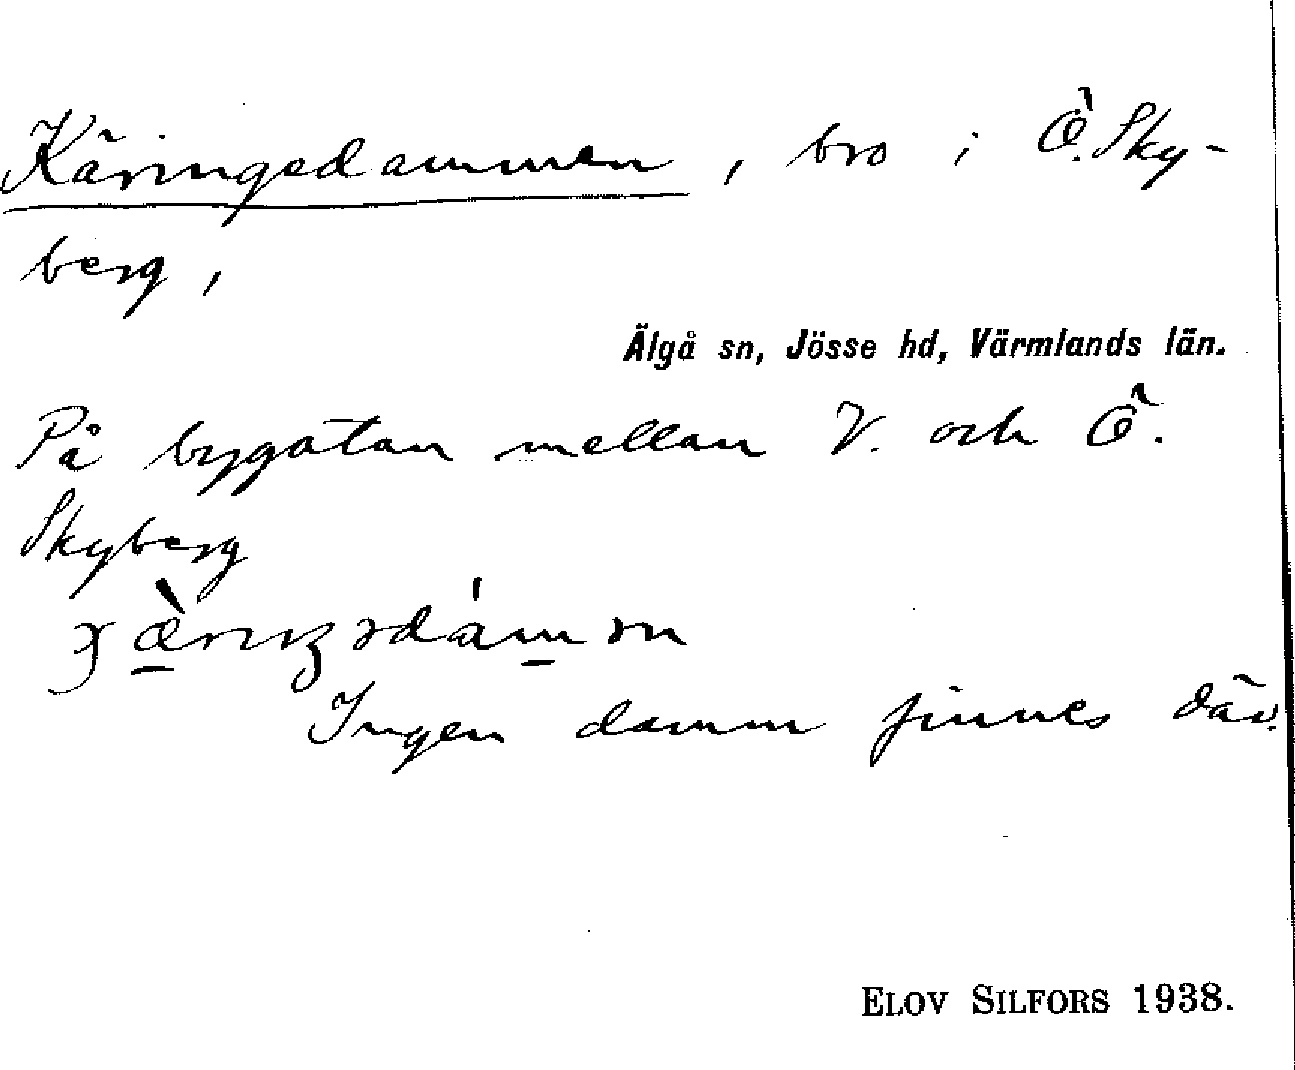 Käringedammen, bro i Ö. Sky-
berg,
Älgå sn, Jösse hd, Värmlands län.
På bygatan mellan V. och Ö.
Skyberg
Ingen damm finnes där.
ELOV SILFORS 1938.